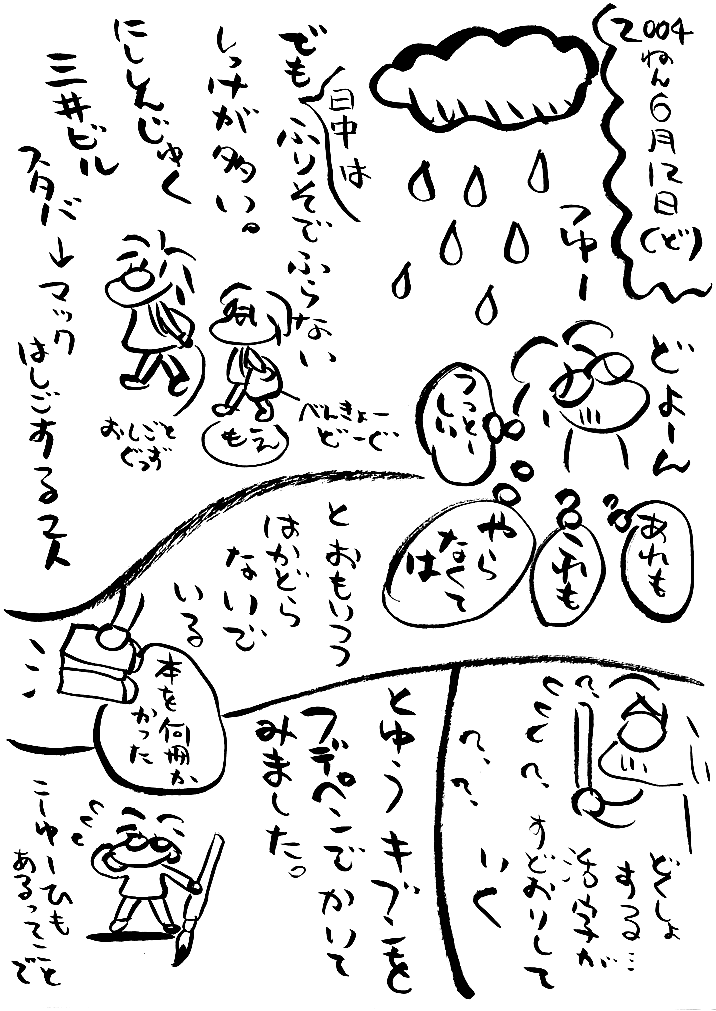 2004
ねん6月12日(ど)
つゆー
日中は
でも ふりそでふらない
しっけが多い。
にししんじゅく
三井ビル
スタバ→マック
はしごする2人
おしごと
ぐっず
もえ
べんきょー
どーぐ
どよーん
うっとー
しい
あれも
これも
やら
なくて
は
とおもいつつ
はかどら
ないで
いる
本を何冊か
かった
どくしょ
する…
活字が
すどおりして
いく
?
?
?
?
?
とゆうキブンを
フデペンでかいて
みました。
こーゆーひも
あるってこと
で